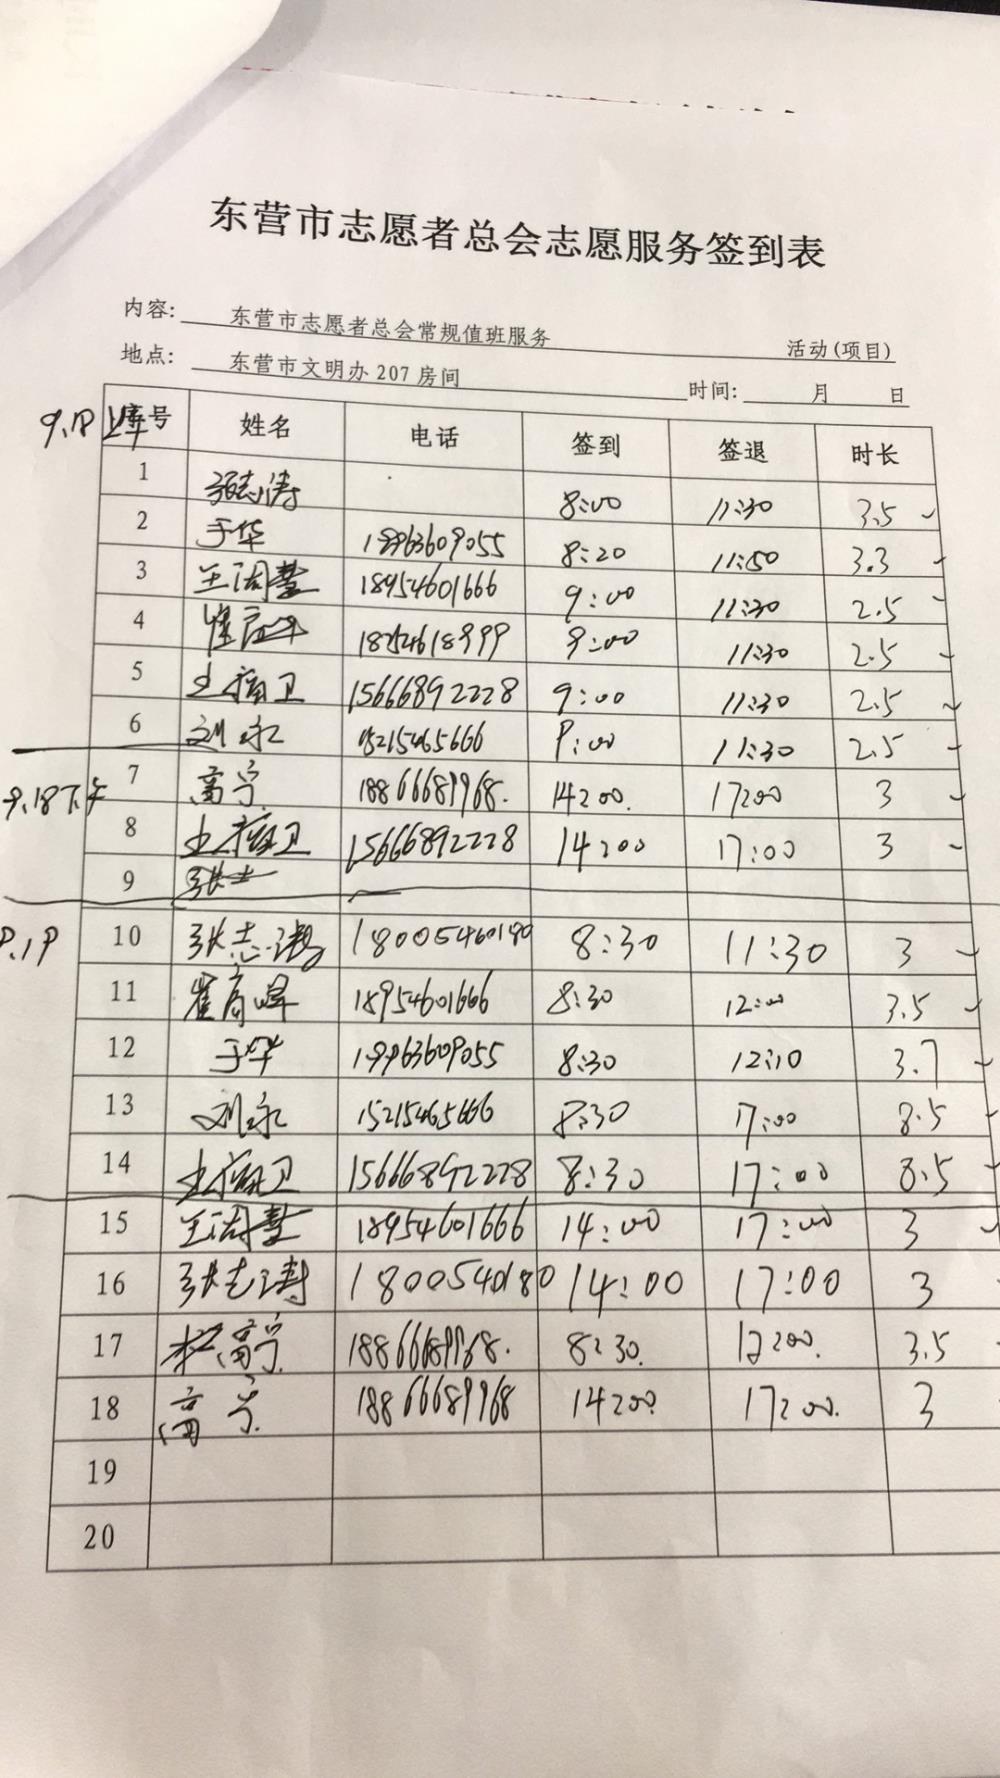 东营市志愿者总会志愿服务签到表
内容: 东营市志愿者总会常规值班服务 活动(项目)
地点: 东营市文明办 207 房间 时间: 月 日
9.18 上午 序号 姓名 电话 签到 签退 时长
1 张志涛 8:00 11:30 3.5
2 于华 18963609055 8:20 11:50 3.3
3 18954601666 9:00 11:30 2.5
4 9:00 11:30 2.5
5 15666892228 9:00 11:30 2.5
6 刘永 15215465666 9:00 11:30 2.5
9.18下午 7 高宁 18866689968. 14:00. 17:00 3
8 15666892228 14:00 17:00 3
9
9.19 10 张志涛 18005460180 8:30 11:30 3
11 崔高峰 18954601666 8:30 12:00 3.5
12 于华 8:30 12:10 3.7
13 刘永 15215465666 8:30 17:00 8.5
14 15666892228 8:30 17:00 8.5
15 18954601666 14:00 17:00 3
16 张志涛 1800540180 14:00 17:00 3
17 高宁 18866689968. 8:30. 12:00. 3.5
18 高宁 18866689968 14:00 17:00. 3
19
20